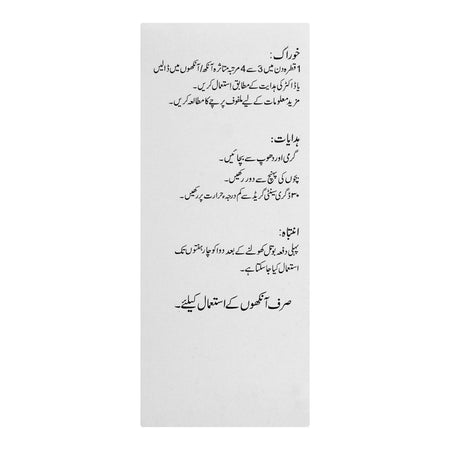 خوراک:
1 قطرہ دن میں 3 سے 4 مرتبہ متاثرہ آنکھ/آنکھوں میں ڈالیں
یا ڈاکٹر کی ہدایت کے مطابق استعمال کریں۔
مزید معلومات کے لیے ملفوف پرچے کا مطالعہ کریں۔
ہدایات:
گرمی اور دھوپ سے بچائیں۔
بچوں کی پہنچ سے دور رکھیں۔
۳۰ ڈگری سینٹی گریڈ سے کم درجہ حرارت پر رکھیں۔
انتباہ:
پہلی دفعہ بوتل کھولنے کے بعد دوا کو چار ہفتوں تک
استعمال کیا جا سکتا ہے۔
صرف آنکھوں کے استعمال کیلئے۔